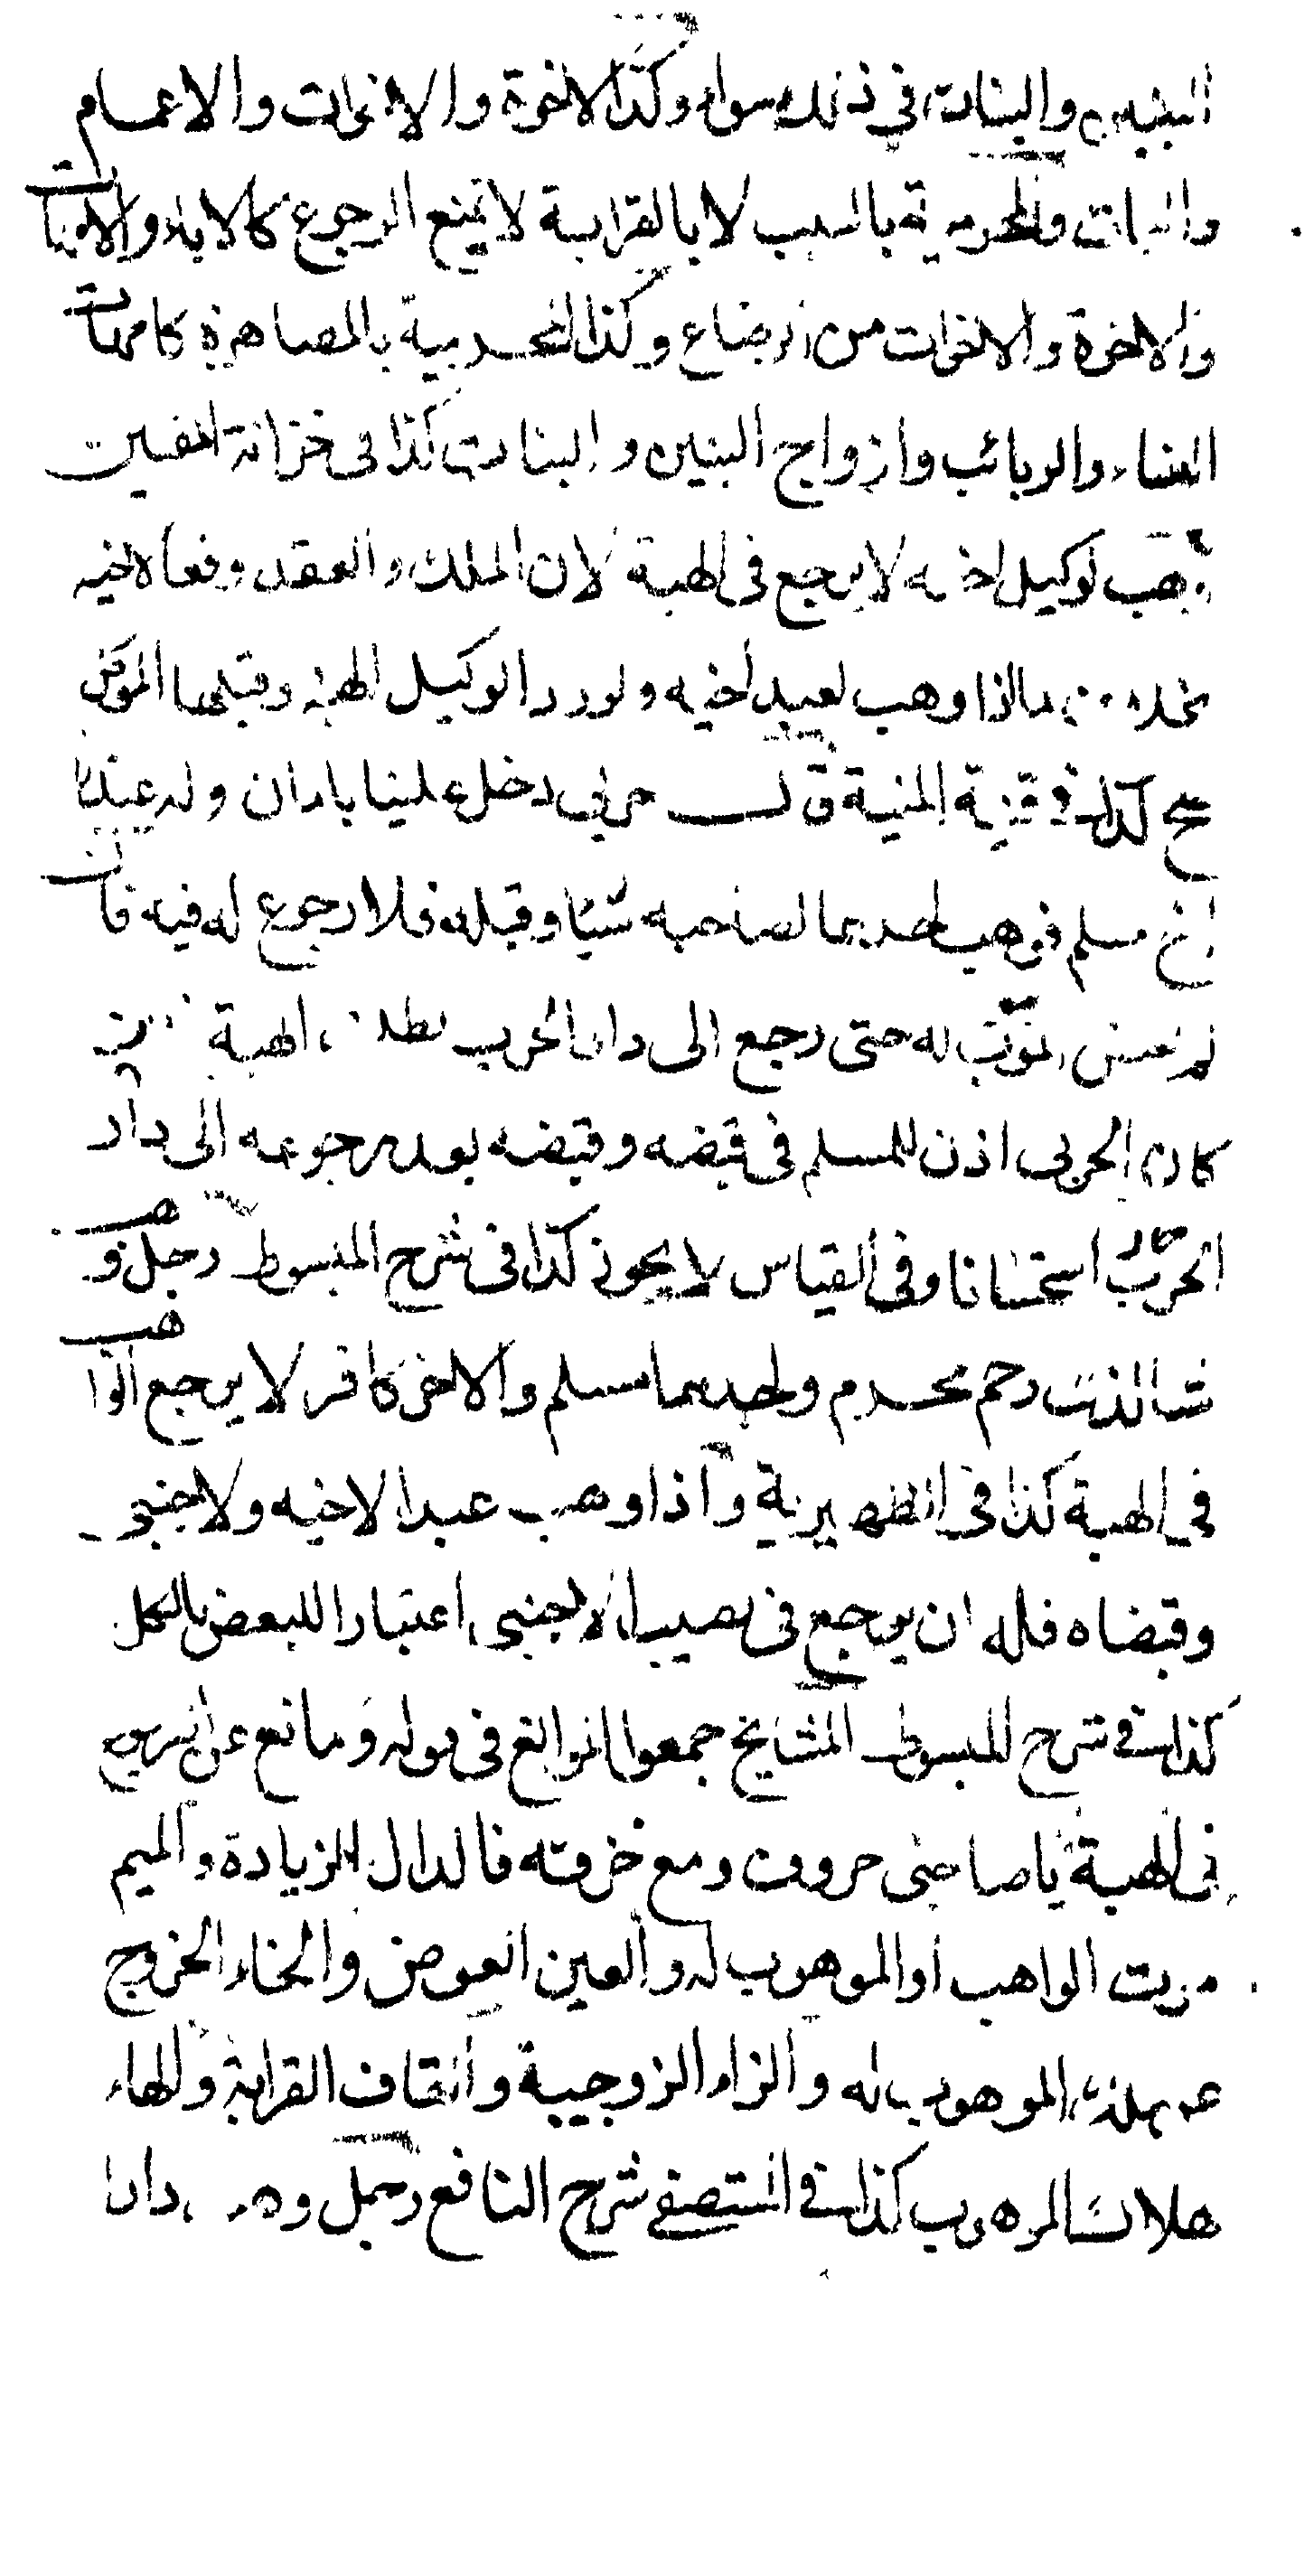 البنين والبنات في ذلك سواء وكذا الاخوة والاخوات والاعمام
والعمات والمحرمية بالسبب لا بالقرابة لا تمنع الرجوع كالاباء والامهات
والاخوة والاخوات من الرضاع وكذا المحرمية بالمصاهرة كامهات
النساء والربائب وازواج البنين والبنات كذا فى خزانة المفتين
وهب لوكيل اخيه لا يرجع فى الهبة لان الملك والعقد وقعا لاخيه
بخلاف ما اذا وهب لعبد اخيه ولو رد الوكيل الهبة وقبلها الموكل
صح كذا في قنية المنية قال حربى دخل علينا بامان وله عندنا
اخ مسلم فوهب احدهما لصاحبه شيئا وقبله فلا رجوع له فيه فان
لم يقبض الموهوب له حتى رجع الى دار الحرب بطلت الهبة فان
كان الحربى اذن للمسلم فى قبضه وقبضه بعد رجوعه الى دار
الحرب جاز استحسانا وفى القياس لا يجوز كذا فى شرح المبسوط رجل وهب
شيئا لذى رحم محرم واحدهما مسلم والاخر كافر لا يرجع الواهب
فى الهبة كذا فى الظهيرية واذا وهب عبدا لاخيه ولاجنبى
وقبضاه فله ان يرجع فى نصيب الاجنبى اعتبارا للبعض بالكل
كذا في شرح المبسوط المشايخ جمعوا الموانع فى قوله ومانع عن الرجوع
فى الهبة يا صاحبى حروف دمع خزقه فالدال الزيادة والميم
موت الواهب او الموهوب له والعين العوض والخاء الخروج
عن ملك الموهوب له والزاء الزوجية والقاف القرابة والهاء
هلاك الموهوب كذا في المستصفى شرح النافع رجل وهب دارا